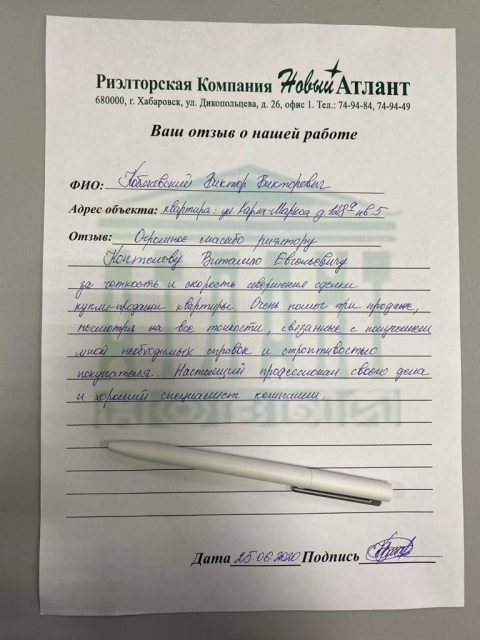 Риэлторская Компания Новый Атлант
680000, г. Хабаровск, ул. Дикопольцева, д. 26, офис 1. Тел.: 74-94-84, 74-94-49
Ваш отзыв о нашей работе
ФИО: Виктор Викторович
Адрес объекта: квартира: ул. Карла-Маркса д. 128 кв. 5
Отзыв: Огромное спасибо риэлтору
Виталию Евгеньевичу
за четкость и скорость совершения сделки
купли-продажи квартиры. Очень помог при продаже,
несмотря на все тонкости, связанные с получением
мной необходимых справок и строптивостью
покупателя. Настоящий профессионал своего дела
и хороший специалист компании.
Дата 25.06.2020 Подпись